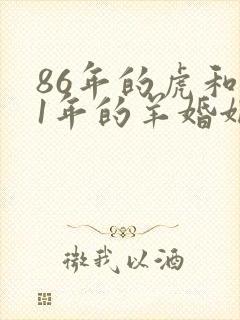 86年的虎和
1年的羊婚如
微我以酒